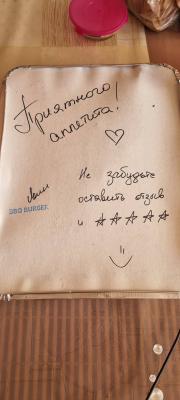 Приятного
аппетита!
Не забудьте
оставить отзыв
BBQ BURGER
и ☆☆☆☆☆